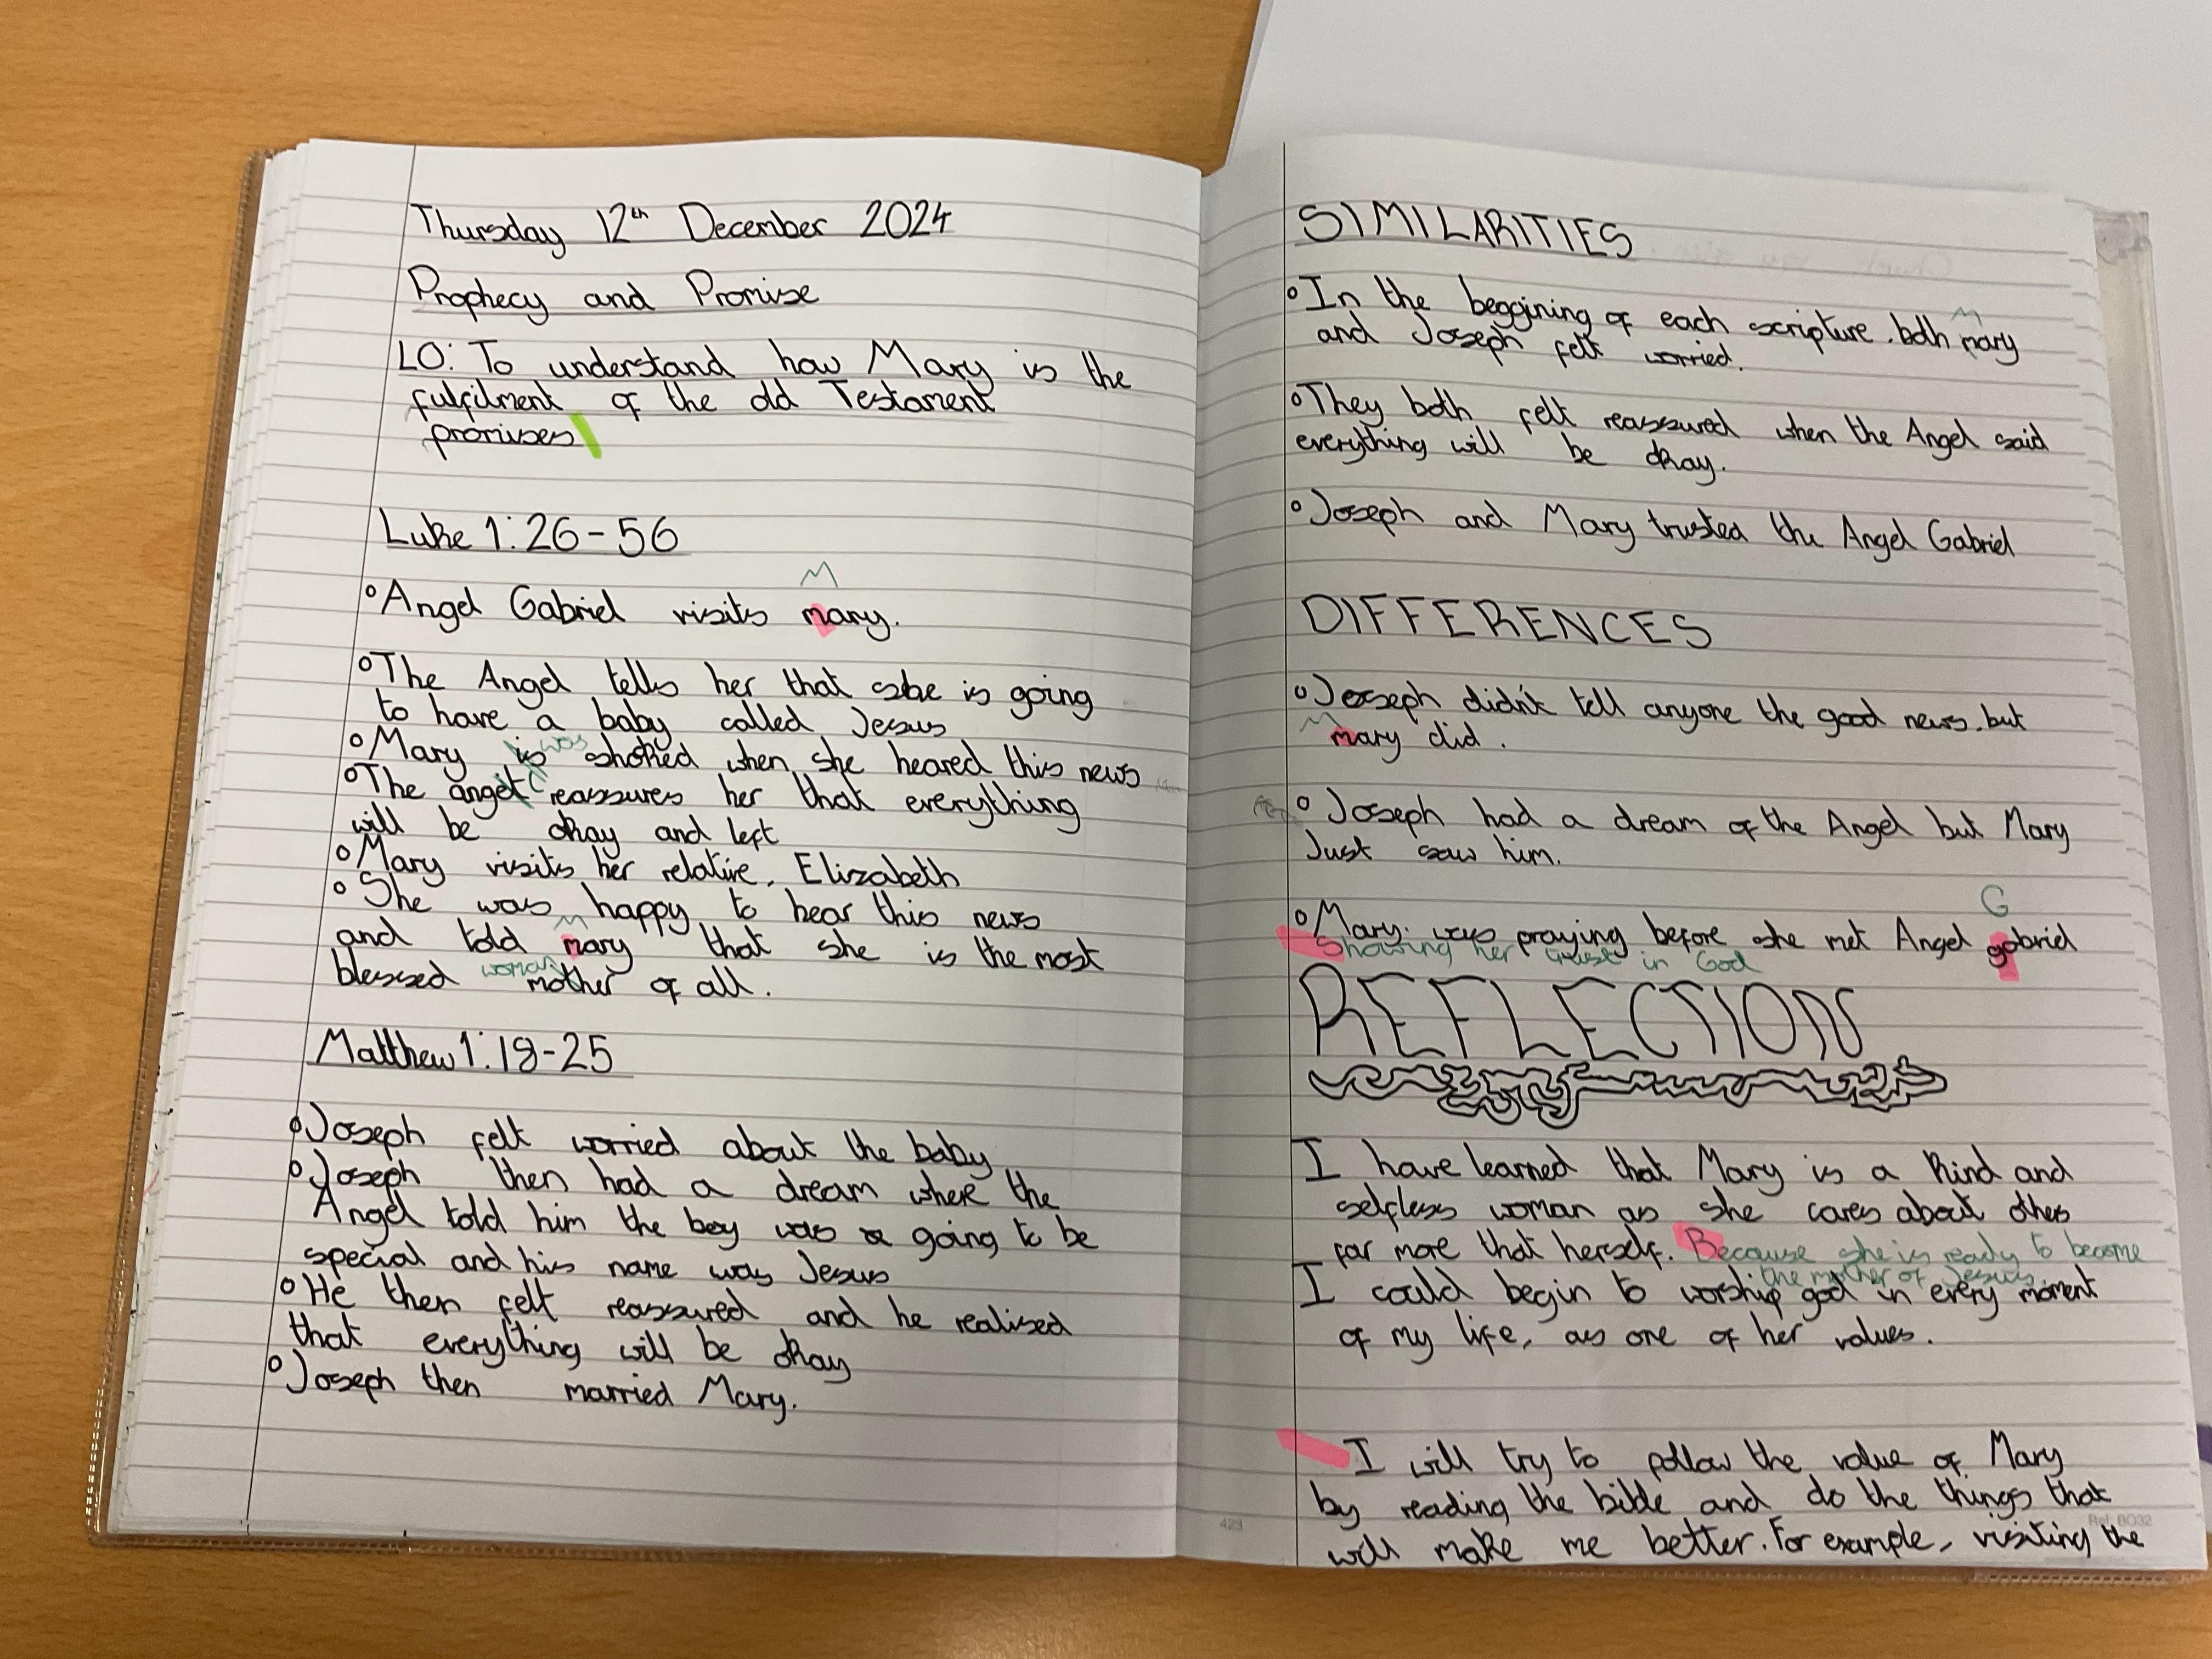 Thursday 12th December 2024
Prophecy and Promise
LO: To understand how Mary is the
fulfilment of the old Testament
promises
Luke 1:26-56
M
°Angel Gabriel visits mary.
°The Angel tells her that she is going
to have a baby called Jesus
was
°Mary is shoked when she heared this news
°The angel reassures her that everything
will be okay and left
°Mary visits her relative, Elizabeth
°She was happy to hear this news
M
and told mary that she is the most
woman
blessed mother of all.
Matthew 1:18-25
°Joseph felt worried about the baby
°Joseph then had a dream where the
Angel told him the boy was going to be
special and his name was Jesus
°He then felt reassured and he realised
that everything will be okay
°Joseph then married Mary.
SIMILARITIES
M
°In the beggining of each scripture. both mary
and Joseph felt worried.
°They both felt reassured when the Angel said
everything will be okay.
°Joseph and Mary trusted the Angel Gabriel
DIFFERENCES
°Joseph didn't tell anyone the good news. but
M
mary did.
°Joseph had a dream of the Angel but Mary
Just saw him.
G
°Mary. was praying before she met Angel gabriel
Showing her trust in God
REFLECTION
I have learned that Mary is a kind and
selfless woman as she cares about others
far more that herself. Because she is ready to become
the mother of Jesus.
I could begin to worship god in every moment
of my life, as one of her values.
I will try to follow the value of Mary
by reading the bible and do the things that
will make me better. For example, visiting the
423
Ref. BO32